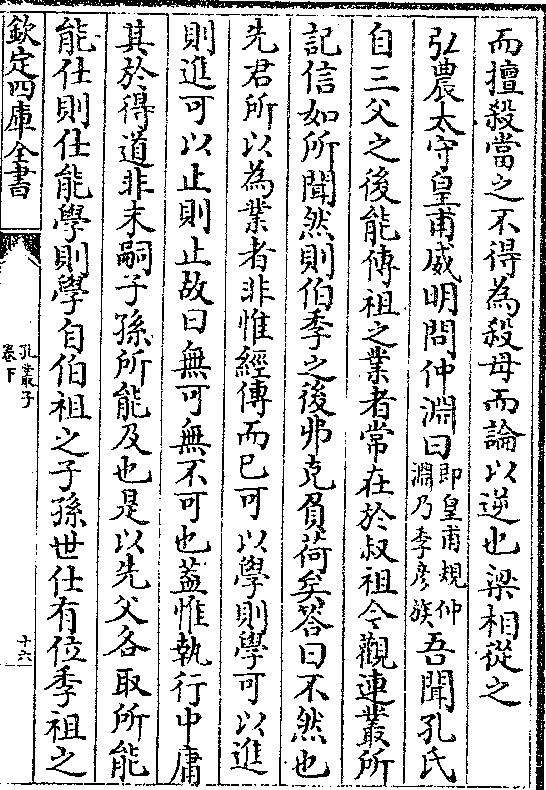 而擅殺當之不得為殺母而論以逆也梁相從之
弘農太守皇甫威明問仲淵曰即皇甫規仲淵乃季彦族吾聞孔氏
自三父之後能傳祖之業者常在於叔祖今觀連叢所
記信如所聞然則伯季之後弗克負荷矣答曰不然也
先君所以為業者非惟經傳而已可以學則學可以進
則進可以止則止故曰無可無不可也蓋惟執行中庸
其於得道非末嗣子孫所能及也是以先父各取所能
能仕則仕能學則學自伯祖之子孫世仕有位季祖之
欽定四庫全書
孔叢子
卷下
十六